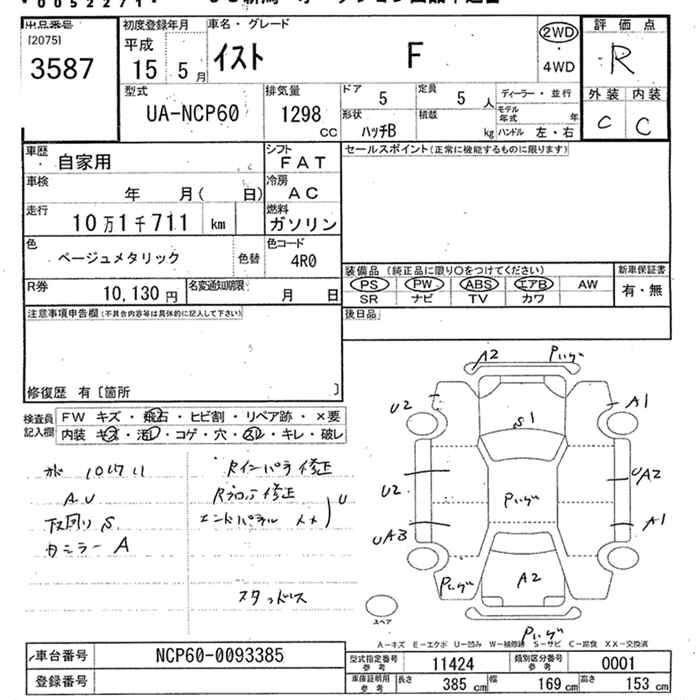 出品番号
[2075]
3587
初度登録年月
平成
15年 5月
車名・グレード
イスト F
2WD
・
4WD
評価点
R
外装 内装
C C
型式
UA-NCP60
排気量
1298 CC
ドア
5
定員
5 人
ディーラー・並行
モデル年式 年
形状
ハッチB
積載
kg
ハンドル 左・右
車歴
自家用
シフト
FAT
セールスポイント(正常に機能するものに限ります)
車検
年 月( 日)
冷房
AC
走行
10万1千711 km
燃料
ガソリン
色
ベージュメタリック
色替
色コード
4R0
装備品(純正品に限り○をつけてください)
PS PW ABS エアB AW
SR ナビ TV カワ
新車保証書
有・無
R券
10,130 円
名変通知期限
月 日
後日品
注意事項申告欄(不具合内容等は具体的に記入して下さい)
修復歴 有〔箇所 〕
検査員記入欄
FW キズ・飛石・ヒビ割・リペア跡・×要
内装 キズ・汚レ・コゲ・穴・スレ・キレ・破レ
A.U
下回り S
カミラー A
Rインパネ修正
Rフロア修正
エンドパネル XX
U
スタッドレス
A2
U2
A1
S1
U2
UA2
UA3
A1
A2
スペア
A-キズ E-エクボ U-凹み W-補修跡 S-サビ C-腐食 XX-交換済
車台番号
NCP60-0093385
登録番号
型式指定番号 参考
11424
類別区分番号 参考
0001
車庫証明用 参考
長さ 385 cm
幅 169 cm
高さ 153 cm